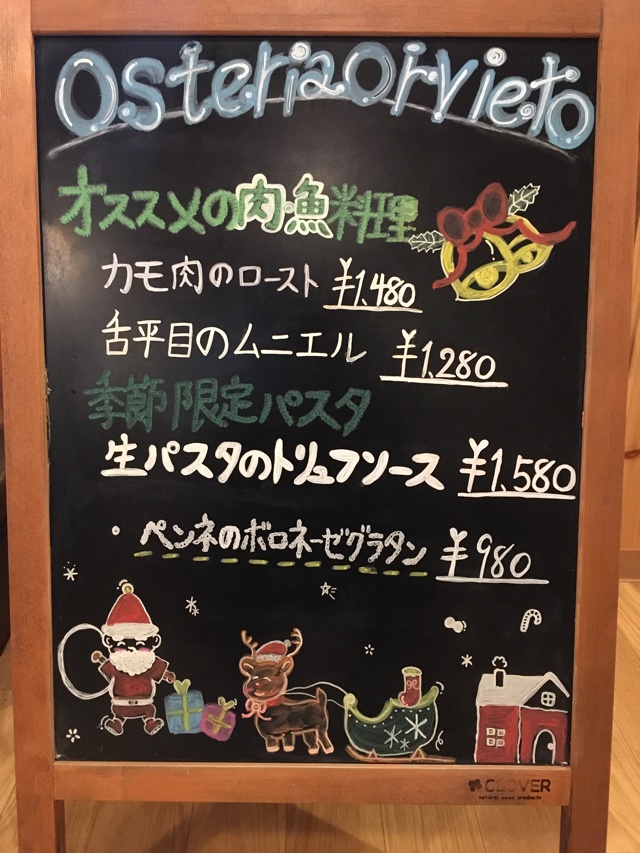 Osteria Orvieto
オススメの肉・魚料理
カモ肉のロースト ¥1,480
舌平目のムニエル ¥1,280
季節限定パスタ
生パスタのトリュフソース ¥1,580
・ペンネのボロネーゼグラタン ¥980
CLOVER
natural wood products